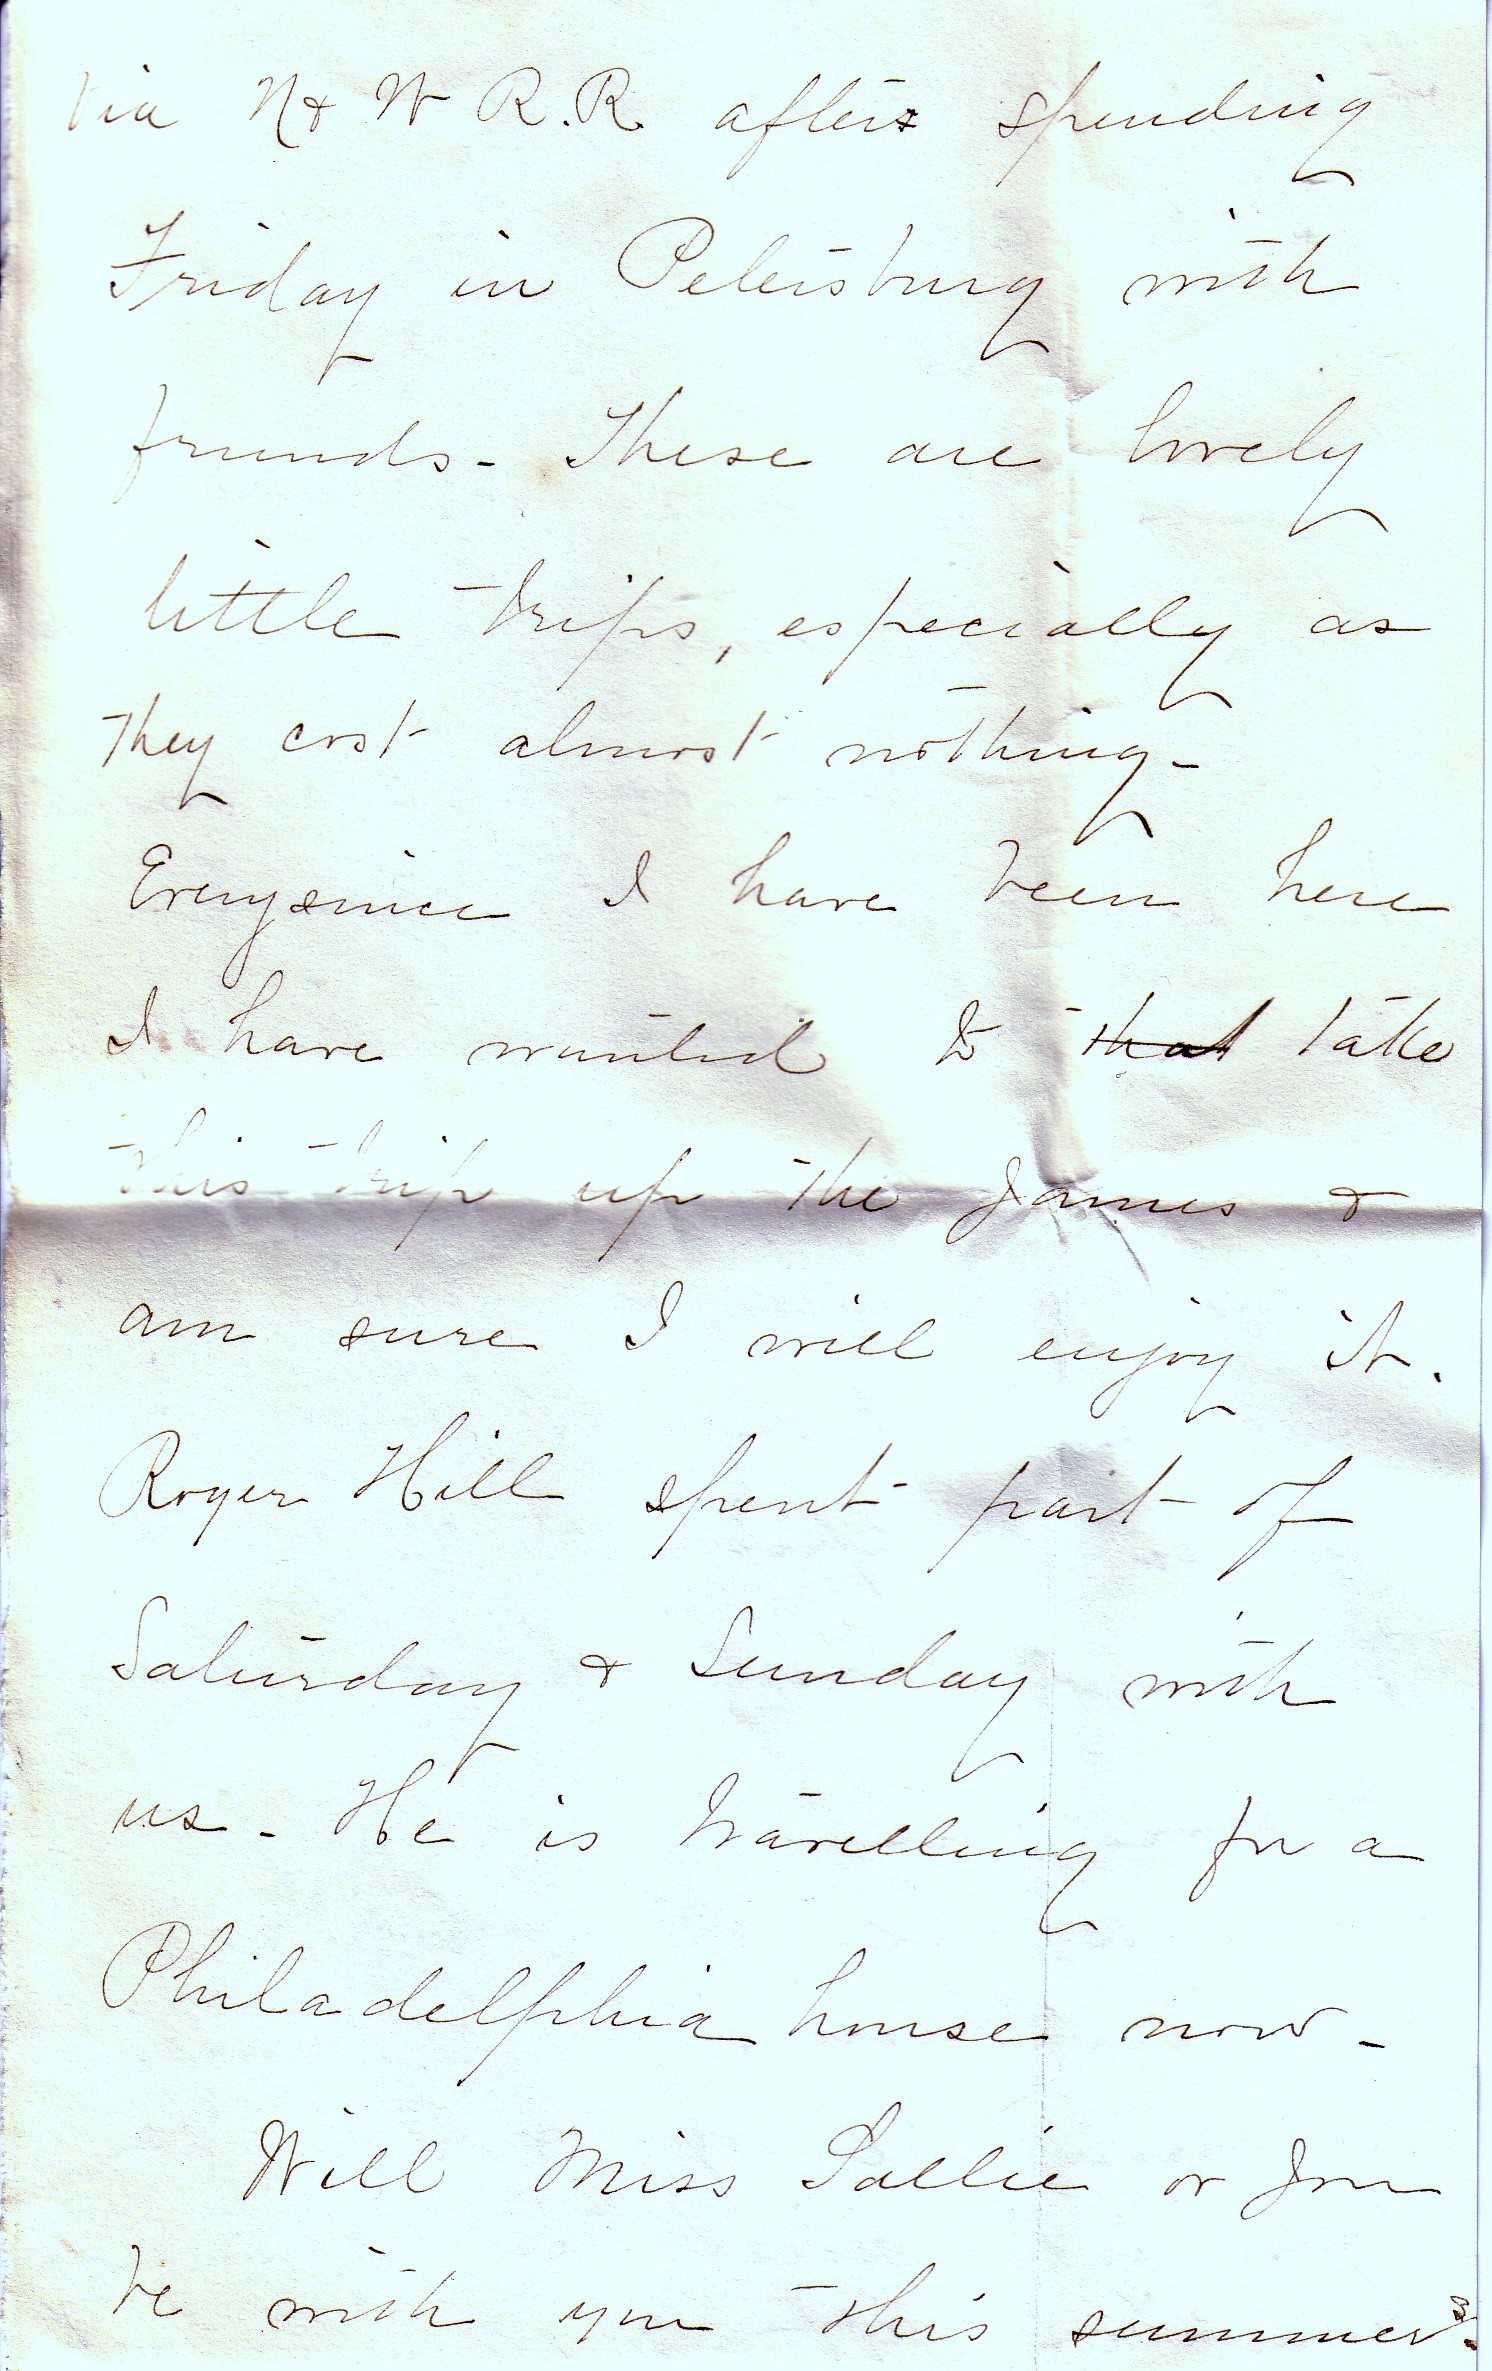 via N & W R.R. after spending
Friday in Petersburg with
friends - These are lovely
little trips, especially as
they cost almost nothing -
Every since I have been here
I have wanted to that take
this trip up the James &
am sure I will enjoy it.
Roger Hill spent part of
Saturday & Sunday with
us - He is travelling for a
Philadelphia house now -
Will Miss Sallie or
be with you this summer?